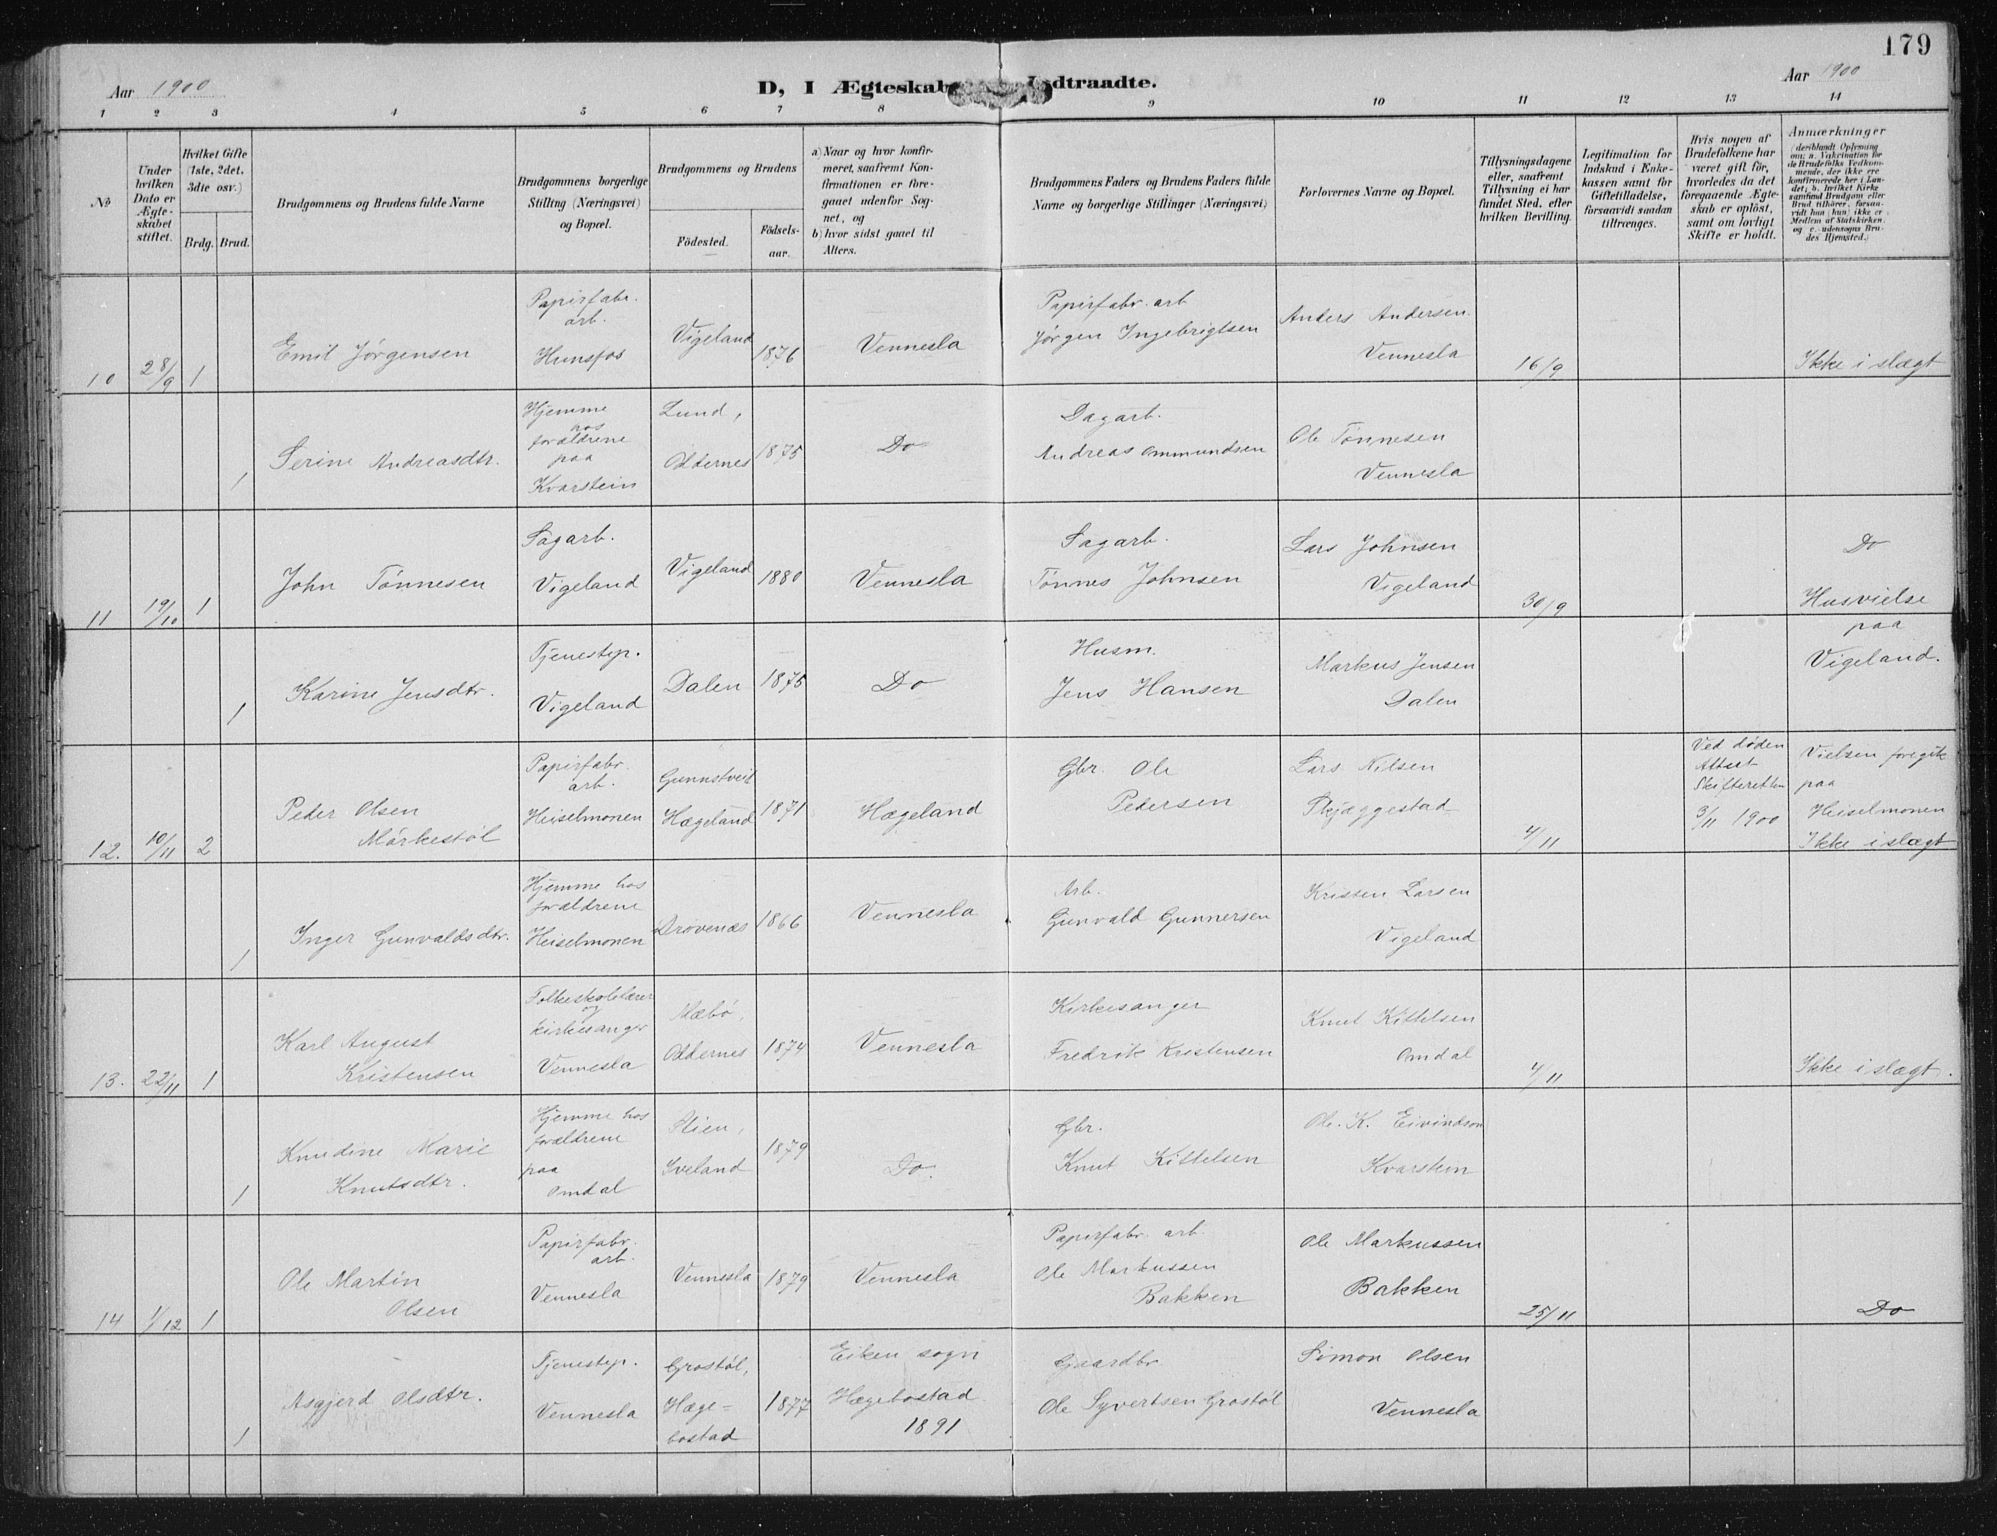 179
Aar 1900
D, I Ægteskab Indtraadte.
Aar 1900
1 2 3 4 5 6 7 8 9 10 11 12 13 14
№
Under hvilken Dato er Ægteskabet stiftet.
Hvilket Gifte (1ste, 2det, 3die osv.)
Brdg. Brud.
Brudgommens og Brudens fulde Navne
Brudgommens borgerlige Stilling (Næringsvei) og Bopæl.
Brudgommens og Brudens
Födested.
Födsels-aar.
a) Naar og hvor konfirmeret, saafremt Konfirmationen er foregaaet udenfor Sognet, og
b) hvor sidst gaaet til Alters.
Brudgommens Faders og Brudens Faders fulde Navne og borgerlige Stillinger (Næringsvei)
Forlovernes Navne og Bopæl.
Tillysningsdagene eller, saafremt Tillysning ei har fundet Sted, efter hvilken Bevilling.
Legitimation for Indskud i Enkekassen samt for Giftetilladelse, forsaavidt saadan tiltrænges.
Hvis nogen af Brudefolkene har været gift før, hvorledes da det foregaaende Ægteskab er oplöst, samt om lovligt Skifte er holdt.
Anmærkninger (deriblandt Oplysning om: a. Vakcination for de Brudefolks Vedkommende, der ikke ere konfirmerede her i Landet; b. hvilket Kirkesamfund Brudgom eller Brud tilhører, forsaavidt han (hun) ikke er Medlem af Statskirken, og c. udensogns Brudes Hjemsted.)
10 28/9 1
Emil Jørgensen
Papirfabr. arb. Hunsfos
Vigeland 1876
Vennesla
Papirfabr. arb Jørgen Ingebrigtsen
Anders Andersen Vennesla
16/9
Ikke i slægt
1
Serine Andreasdtr.
Hjemme hos forældrene paa Kvarstein
Lund, Oddernes 1875
Do
Dagarb. Andreas Ommundsen
Ole Tønnesen Vennesla
11 19/10 1
John Tønnesen
Sagarb. Vigeland
Vigeland 1880
Vennesla
Sagarb. Tønnes Johnsen
Lars Johnsen Vigeland
30/9
Do
Husvielse paa Vigeland.
1
Karine Jensdtr.
Tjenestep. Vigeland
Dalen 1875
Do
Husm. Jens Hansen
Markus Jensen Dalen
12. 10/11 2
Peder Olsen Mørkestøl
Papirfabr. arb. Heiselmonen
Gunnstveit Hægeland 1871
Hægeland
Gbr. Ole Pedersen
Lars Nilsen Skjæggestad
4/11
Ved døden Attest Skifteretten 3/11 1900
Vielsen foregik paa Heiselmonen
Ikke i slægt
1
Inger Gunvaldsdtr.
Hjemme hos forældrene Heiselmonen
Drovenæs 1866
Vennesla
Arb. Gunvald Gunnersen
Kristen Larsen Vigeland
13. 22/11 1
Karl August Kristensen
Folkeskolelærer og kirkesanger Vennesla
Mæbø, Oddernes 1874
Vennesla
Kirkesanger Fredrik Kristensen
Knut Kittelsen Omdal
4/11
Ikke i slægt.
1
Knudine Marie Knutsdtr.
Hjemme hos forældrene paa Omdal
Stien, Iveland 1879
Do.
Gbr. Knut Kittelsen
Ole. K. Eivindson Kvarstein
14 1/12 1
Ole Martin Olsen
Papirfabr. arb. Vennesla
Vennesla 1879
Vennesla
Papirfabr. arb. Ole Markussen Bakken
Ole Markussen Bakken
25/11
Do
1
Asgjerd Olsdtr.
Tjenestep. Vennesla
Grostøl, Hæge=bostad 1877
Eiken sogn Hægebostad 1891
Gaardbr. Ole Syvertsen Grostøl
Simon Olsen Vennesla